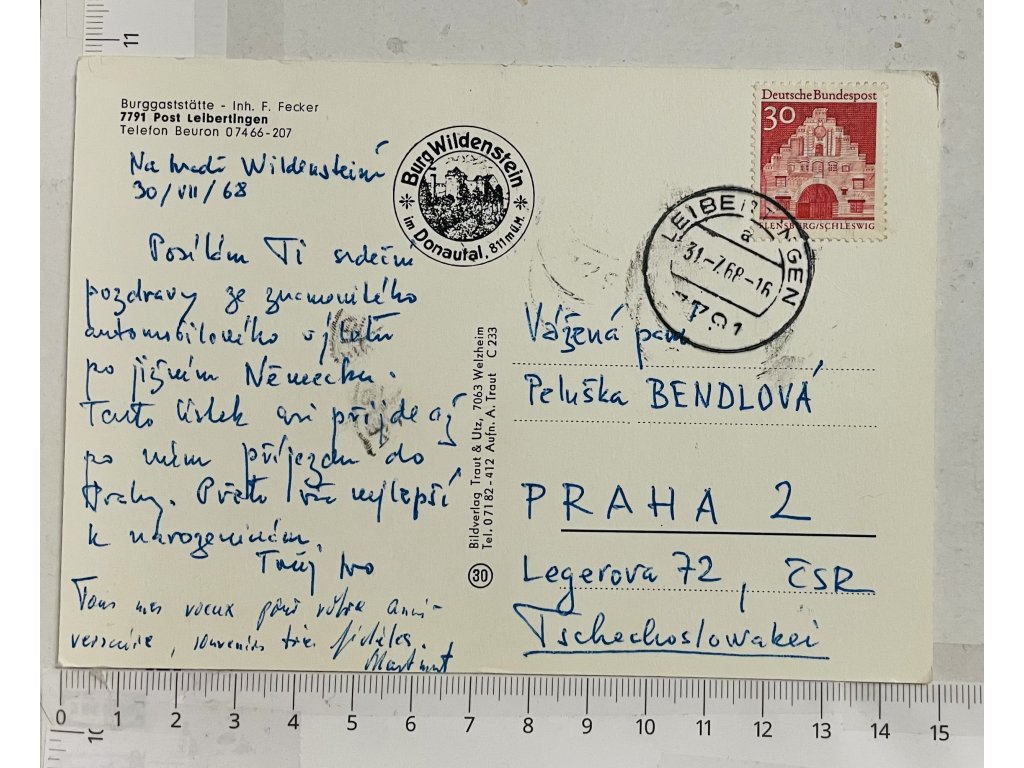 Burggaststätte - Inh. F. Fecker
7791 Post Leibertingen
Telefon Beuron 07466-207
Na hradě Wildensteině
30/VII/68
Posílám Ti srdečné
pozdravy ze znamenitého
automobilového výletu
po jižním Německu.
Tento lístek asi přijde až
po mém příjezdu do
Prahy. Přeto vše nejlepší
k narozeninám.
Tvůj Ivo
Tous mes voeux pour votre anni-
versaire, souvenirs très fidèles.
Hartmut
Burg Wildenstein
im Donautal. 811 m ü.M.
Bildverlag Traut & Utz, 7063 Welzheim
Tel. 07182-412 Aufn. A. Traut C 233
30
Deutsche Bundespost
30
FLENSBURG/SCHLESWIG
LEIBERTINGEN
a
31.-7.68-16
7791
Vážená paní
Peluška BENDLOVÁ
PRAHA 2
Legerova 72, ČSR
Tschechoslowakei
11
10
0 1 2 3 4 5 6 7 8 9 10 11 12 13 14 15